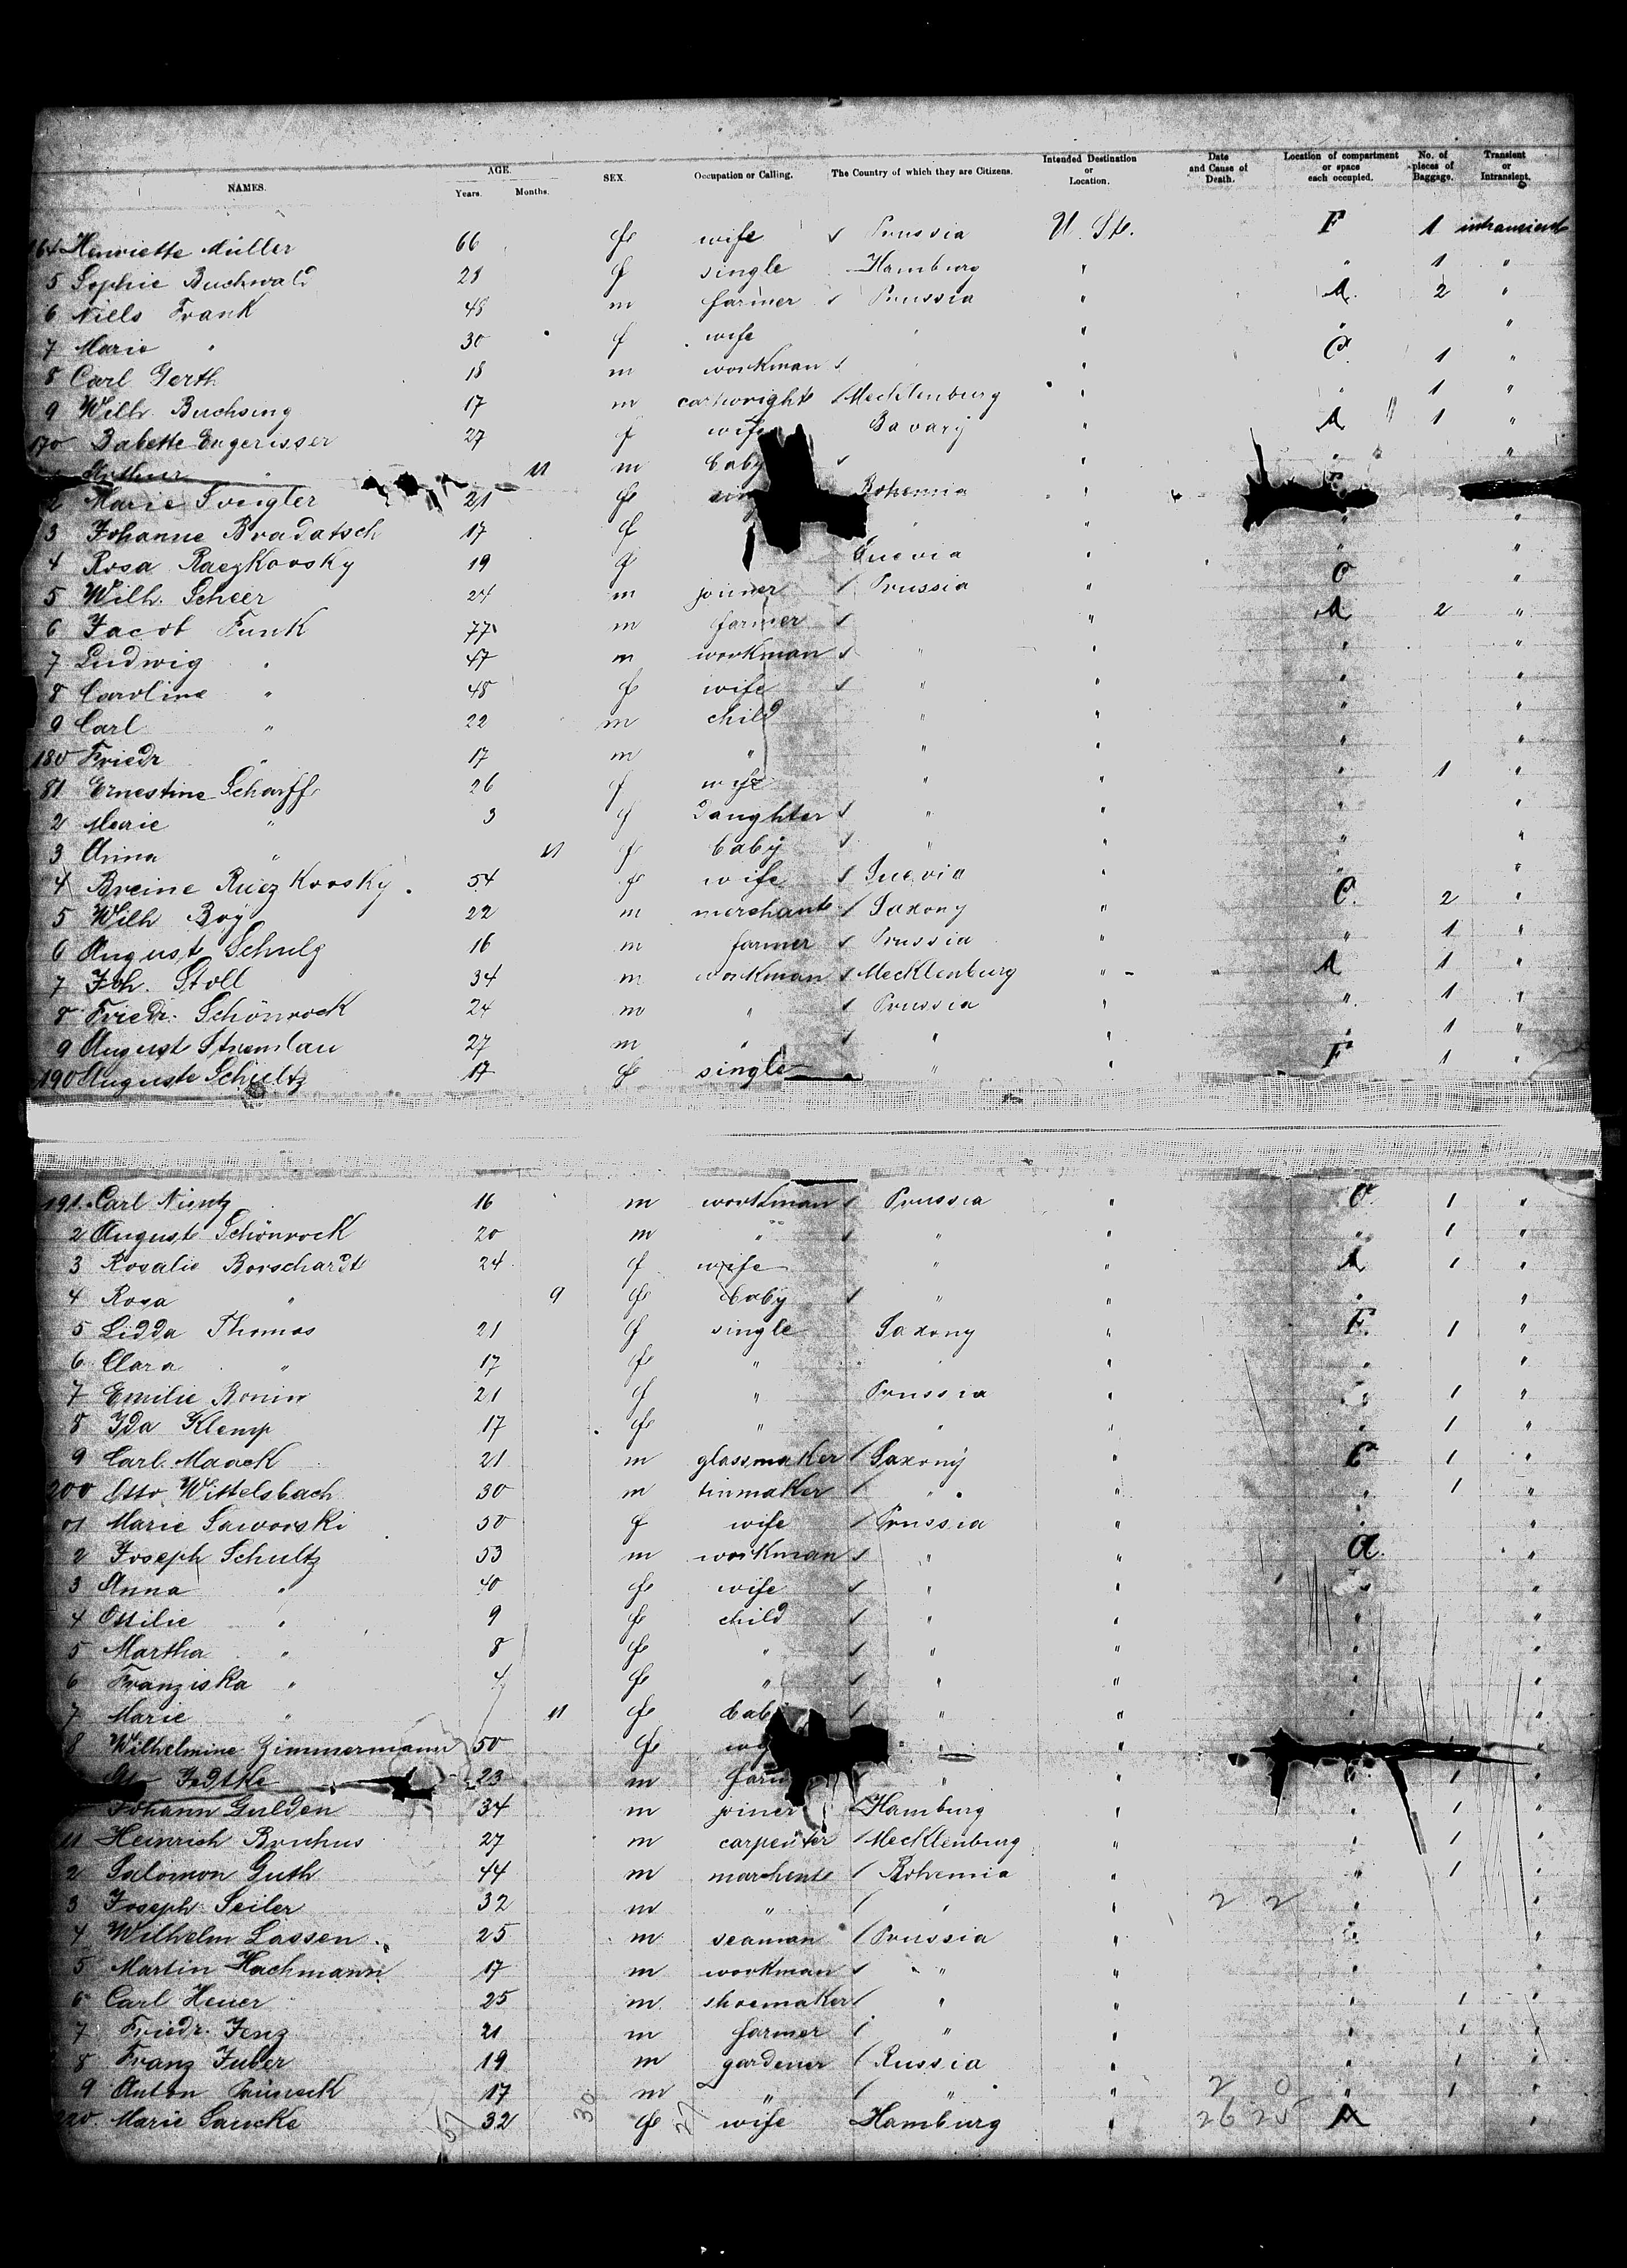 NAMES. AGE. Years. Months. SEX. Occupation or Calling. The Country of which they are Citizens. Intended Destination or Location. Date and Cause of Death. Location of compartment or space each occupied. No. of pieces of Baggage. Transient or Intransient.
164 Henriette Müller 66 f wife Prussia U. St. F 1 intransient
5 Sophie Buchwald 28 f single Hamburg " " 1 "
6 Niels Frank 48 m farmer Prussia " A. 2 "
7 Marie " 30 f wife " " " "
8 Carl Gerth 18 m workman " " C. 1 "
9 Wilh. Buchsing 17 m cartwright Mecklenburg " " 1 "
170 Babette Engerisser 27 f wife Bavary " A 1 "
Arthur " 11 m baby " " "
2 Marie 21 f Bohemia "
3 Johanne Bradatsch 17 f " " " "
4 Rosa Raczkovsky 19 f " " "
5 Wilh. Scheer 24 m joiner Prussia " C "
6 Jacob Funk 77 m farmer " A 2 "
7 Ludwig " 47 m workman " " " "
8 Caroline " 48 f wife " " " "
9 Carl " 22 m child " " " "
180 Friedr " 17 m " " " " "
81 Ernestine Scharff 26 f wife " " " 1 "
2 Marie " 3 f daughter " " " "
3 Anna " 11 f baby " " " "
4 54 f wife " " "
5 Wilh Boy 22 m merchant Saxony " C. 2 "
6 August Schulz 16 m farmer Prussia " " 1 "
7 Joh. Stoll 34 m workman Mecklenburg " A 1 "
8 Friedr. Schönrock 24 m " Prussia " " 1 "
9 August Stremlau 27 m " " " " 1 "
190 Auguste Schultz 17 f single " " F 1 "
191. Carl 16 m workman Prussia " C. 1 "
2 August Schönrock 20 m " " " " 1 "
3 Rosalie Borschardt 24 f wife " " A 1 "
4 Rosa " 9 f baby " " " "
5 Lidda Thomas 21 f single Saxony " F. 1 "
6 Clara " 17 f " " " " "
7 Emilie Bonin 21 f " Prussia " " 1 "
8 Ida Klemp 17 f " " " " 1 "
9 Carl Maack 21 m glassmaker Saxony " C 1 "
200 Otto Wittelsbach 30 m tinmaker " " " 1 "
01 Marie Saworski 50 f wife Prussia " " "
2 Joseph Schultz 53 m workman " " A. "
3 Anna " 40 f wife " " " "
4 Ottilie " 9 f child " " " "
5 Martha " 8 f " " " " "
6 Franziska " 4 f " " " " "
7 Marie " 11 f baby " " " "
8 Wilhelmine Zimmermann 50 f " " "
Jedtke 23 m " " " 1 "
Johann Gulden 34 m joiner Hamburg " " 1 "
11 Heinrich Bruhus 27 m carpenter Mecklenburg " " 1 "
2 Salomon Guth 44 m marchent Bohemia " " 1 "
3 Joseph Seiler 32 m " " " 2 2 " "
4 Wilhelm Lassen 25 m seaman Prussia " " "
5 Martin Hachmann 17 m workman " " " "
6 Carl Heuer 25 m shoemaker " " " 1 "
7 Friedr. Jenz 21 m farmer " " " 1 "
8 Franz Juber 19 m gardener Russia " " 1 "
9 Anton 17 m " " " 2 0 " 1 "
220 Marie Saucke 32 f wife Hamburg " 26 25 A "
30 27